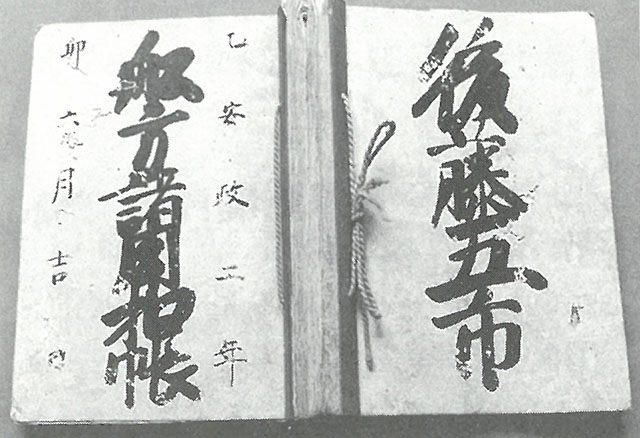 後藤五市
乙安政二年
船方諸帳
卯六月吉日